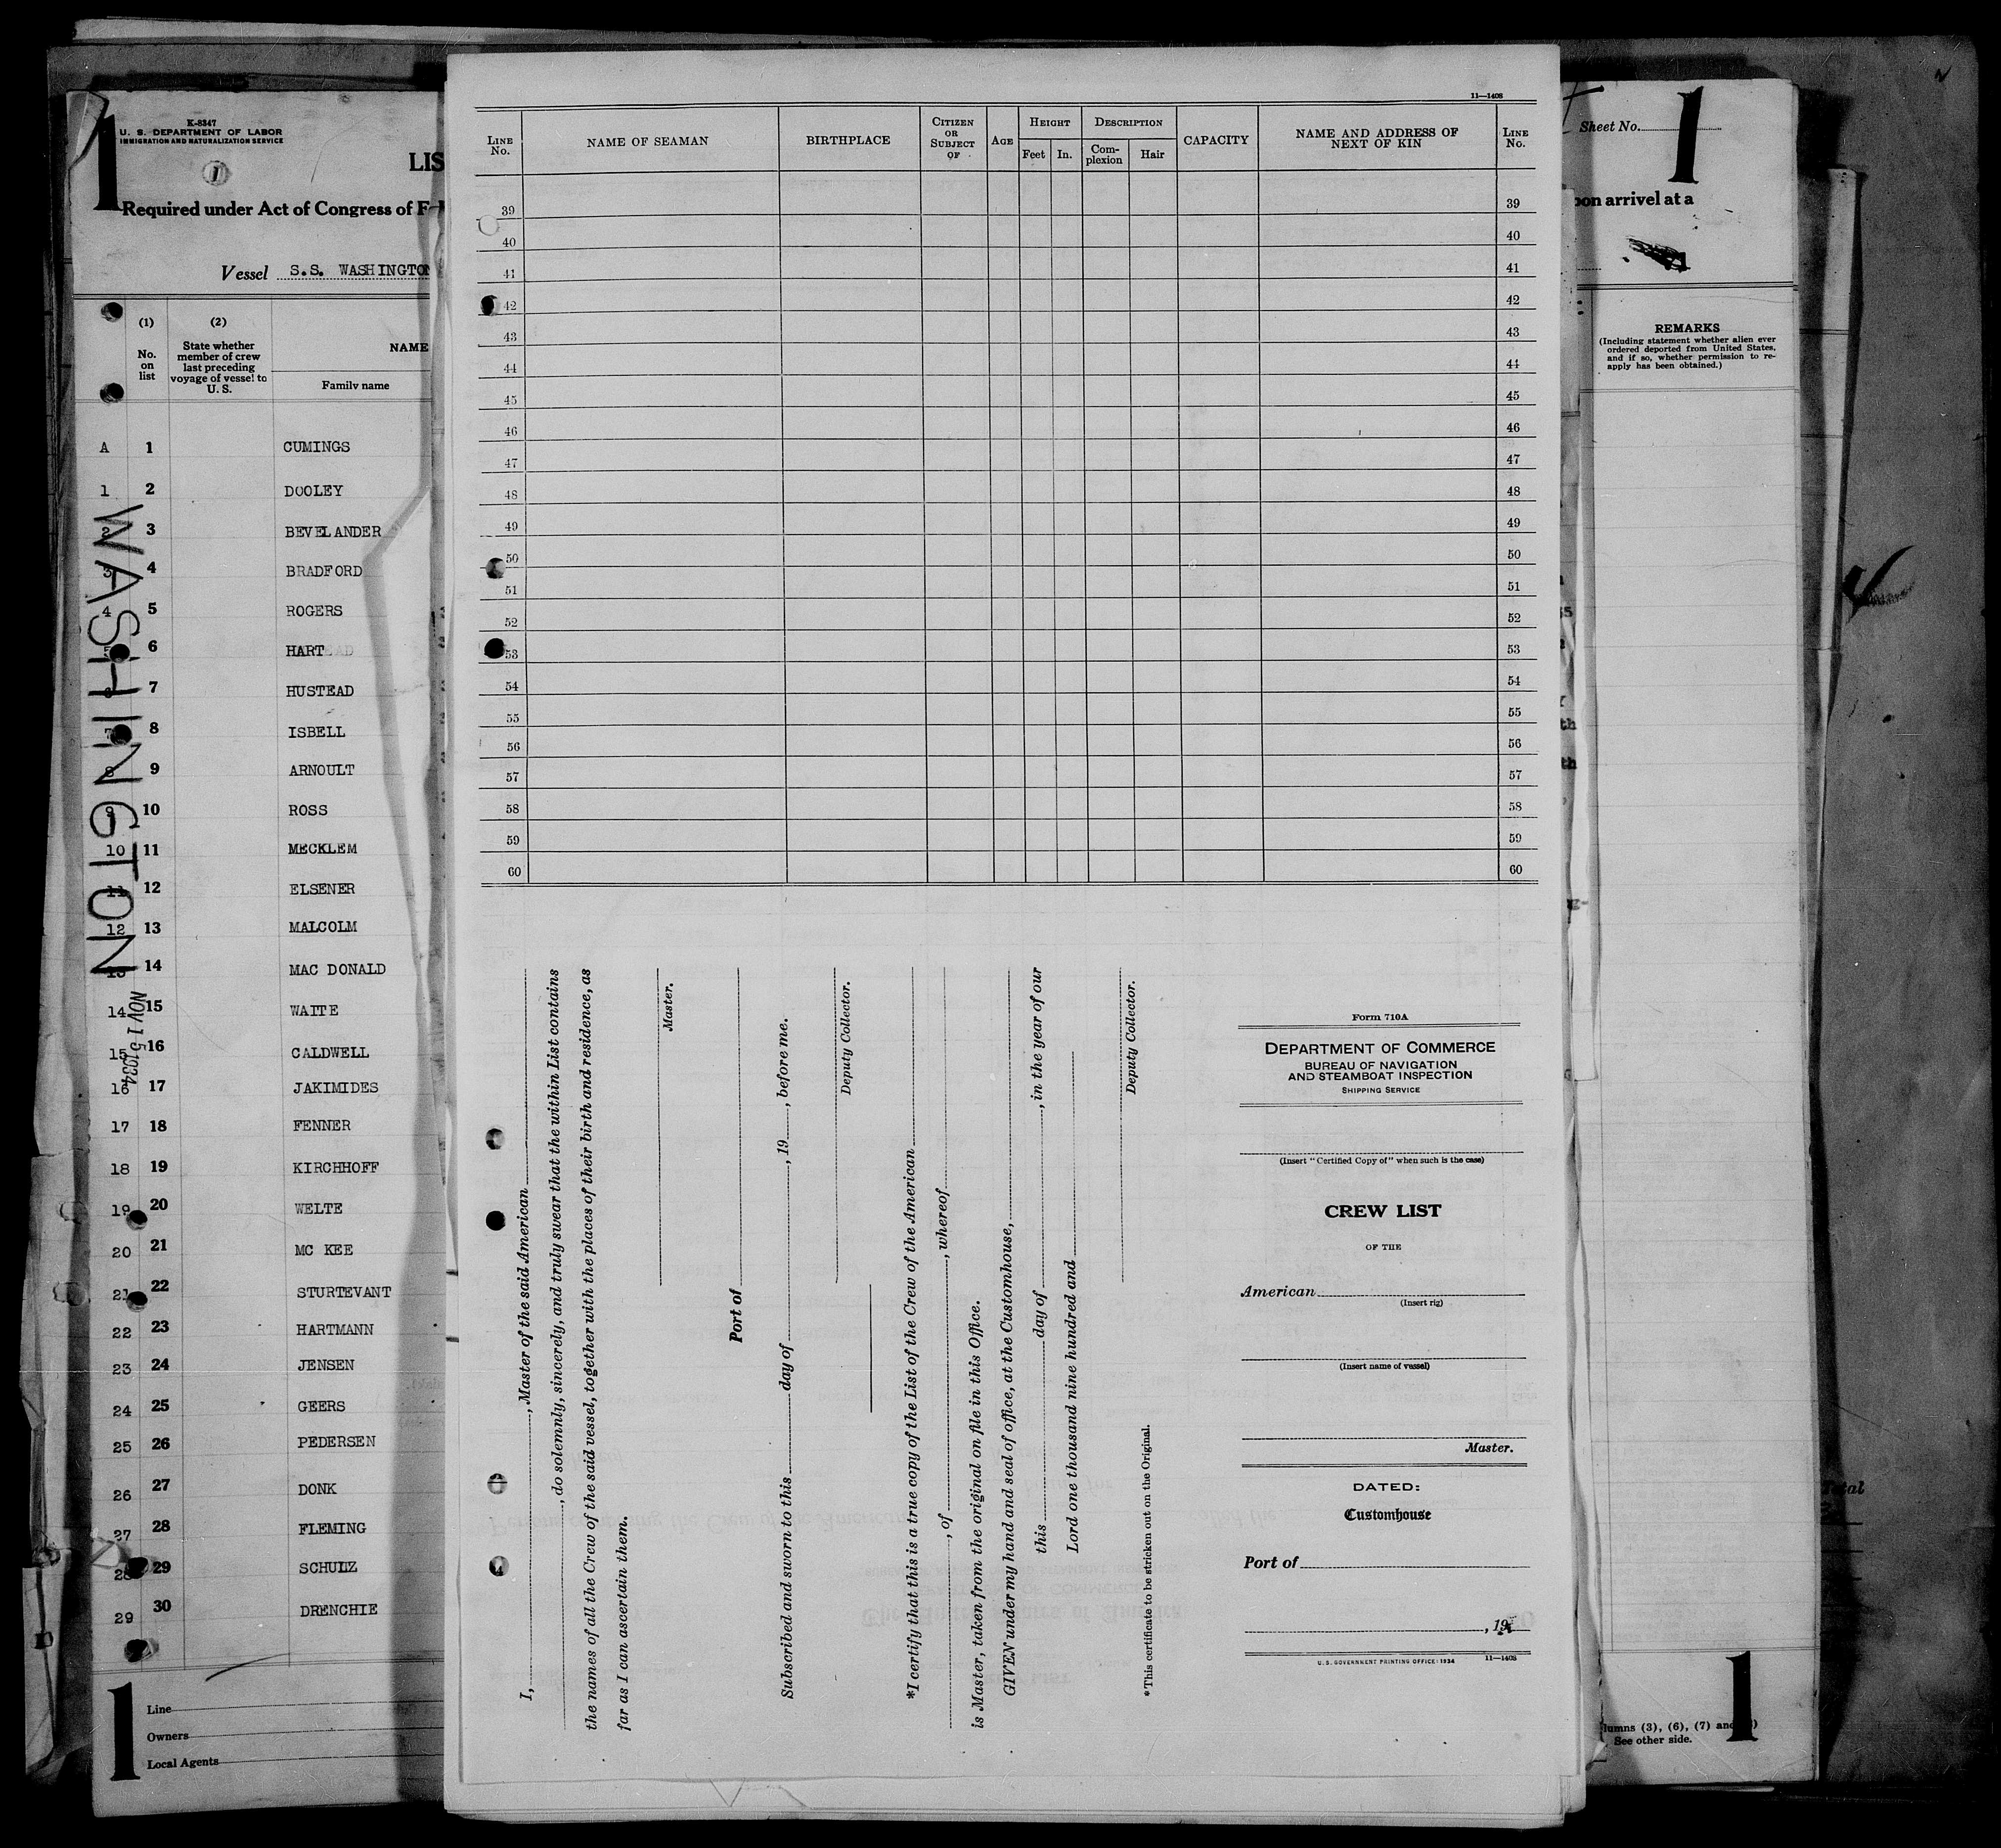 1
K-8347
U. S. DEPARTMENT OF LABOR
IMMIGRATION AND NATURALIZATION SERVICE
1
LIS
Required under Act of Congress of F
Vessel S.S. WASHINGTON
(1) (2)
No. on list
State whether member of crew last preceding voyage of vessel to U. S.
NAME
Family name
A 1 CUMINGS
1 2 DOOLEY
2 3 BEVELANDER
3 4 BRADFORD
4 5 ROGERS
5 6 HART
6 7 HUSTEAD
7 8 ISBELL
8 9 ARNOULT
9 10 ROSS
10 11 MECKLEM
11 12 ELSENER
12 13 MALCOLM
13 14 MAC DONALD
14 15 WAITE
15 16 CALDWELL
16 17 JAKIMIDES
17 18 FENNER
18 19 KIRCHHOFF
19 20 WELTE
20 21 MC KEE
21 22 STURTEVANT
22 23 HARTMANN
23 24 JENSEN
24 25 GEERS
25 26 PEDERSEN
26 27 DONK
27 28 FLEMING
28 29 SCHULZ
29 30 DRENCHIE
WASHINGTON
NOV 15 1934
1
Line
Owners
Local Agents
11—1408
LINE No.
NAME OF SEAMAN
BIRTHPLACE
CITIZEN OR SUBJECT OF
AGE
HEIGHT
Feet In.
DESCRIPTION
Complexion Hair
CAPACITY
NAME AND ADDRESS OF NEXT OF KIN
LINE No.
39 39
40 40
41 41
42 42
43 43
44 44
45 45
46 46
47 47
48 48
49 49
50 50
51 51
52 52
53 53
54 54
55 55
56 56
57 57
58 58
59 59
60 60
I, , Master of the said American
, do solemnly, sincerely, and truly swear that the within List contains
the names of all the Crew of the said vessel, together with the places of their birth and residence, as
far as I can ascertain them.
Master.
Port of
Subscribed and sworn to this day of , 19 , before me.
Deputy Collector.
*I certify that this is a true copy of the List of the Crew of the American
, of , whereof
is Master, taken from the original on file in this Office.
GIVEN under my hand and seal of office, at the Customhouse,
this day of , in the year of our
Lord one thousand nine hundred and
Deputy Collector.
*This certificate to be stricken out on the Original.
Form 710A
DEPARTMENT OF COMMERCE
BUREAU OF NAVIGATION
AND STEAMBOAT INSPECTION
SHIPPING SERVICE
(Insert "Certified Copy of" when such is the case)
CREW LIST
OF THE
American
(Insert rig)
(Insert name of vessel)
Master.
DATED:
Customhouse
Port of
, 19
U.S. GOVERNMENT PRINTING OFFICE: 1934 11—1408
Sheet No.
1
upon arrival at a
REMARKS
(Including statement whether alien ever
ordered deported from United States,
and if so, whether permission to re-
apply has been obtained.)
Total
lumns (3), (6), (7) and
See other side.
1